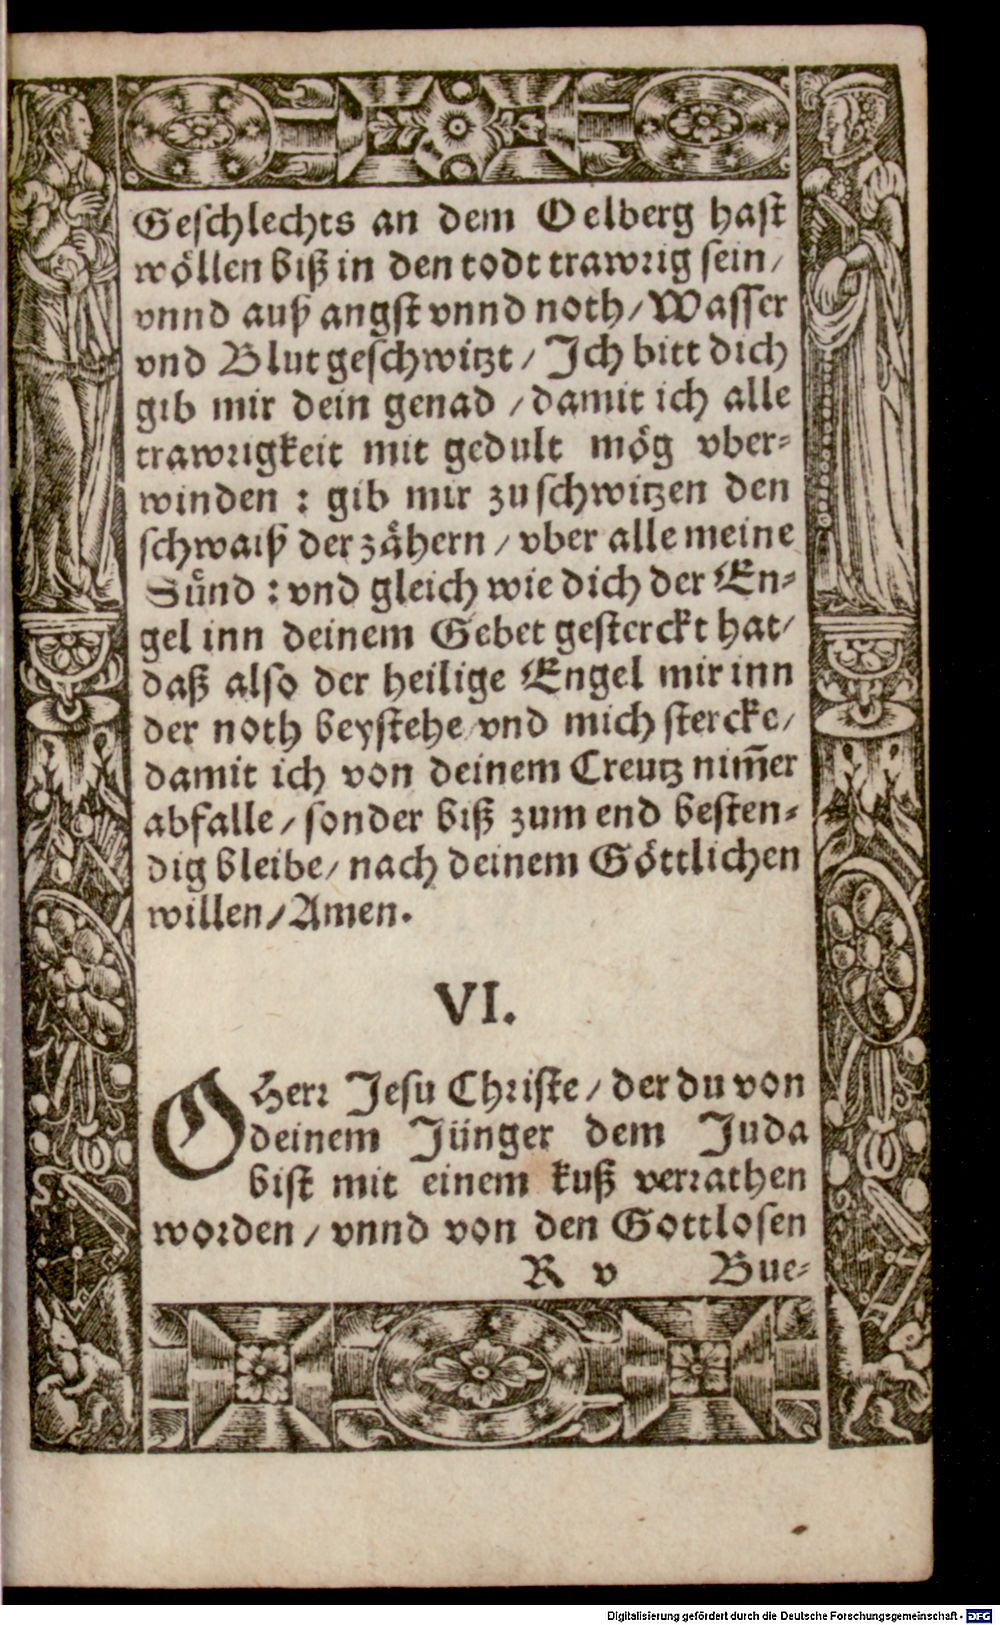 Geſchlechts an dem Oelberg haſt
woͤllen biß in den todt trawrig ſein/
vnnd auß angſt vnnd noth/ Waſſer
vnd Blut geſchwitzt/ Jch bitt dich
gib mir dein genad/ damit ich alle
trawrigkeit mit gedult moͤg vber-
winden: gib mir zu ſchwitzen den
ſchwaiß der zaͤhern/ vber alle meine
Suͤnd: vnd gleich wie dich der En-
gel inn deinem Gebet geſterckt hat/
daß alſo der heilige Engel mir inn
der noth beyſtehe/ vnd mich ſtercke/
damit ich von deinem Creutz nim̄er
abfalle/ ſonder biß zum end beſten-
dig bleibe/ nach deinem Goͤttlichen
willen/ Amen.
VI.
O Herr Jeſu Chriſte/ der du von
deinem Jünger dem Juda
biſt mit einem kuß verrathen
worden/ vnnd von den Gottloſen
R v Bue-
Digitalisierung gefördert durch die Deutsche Forschungsgemeinschaft - DFG